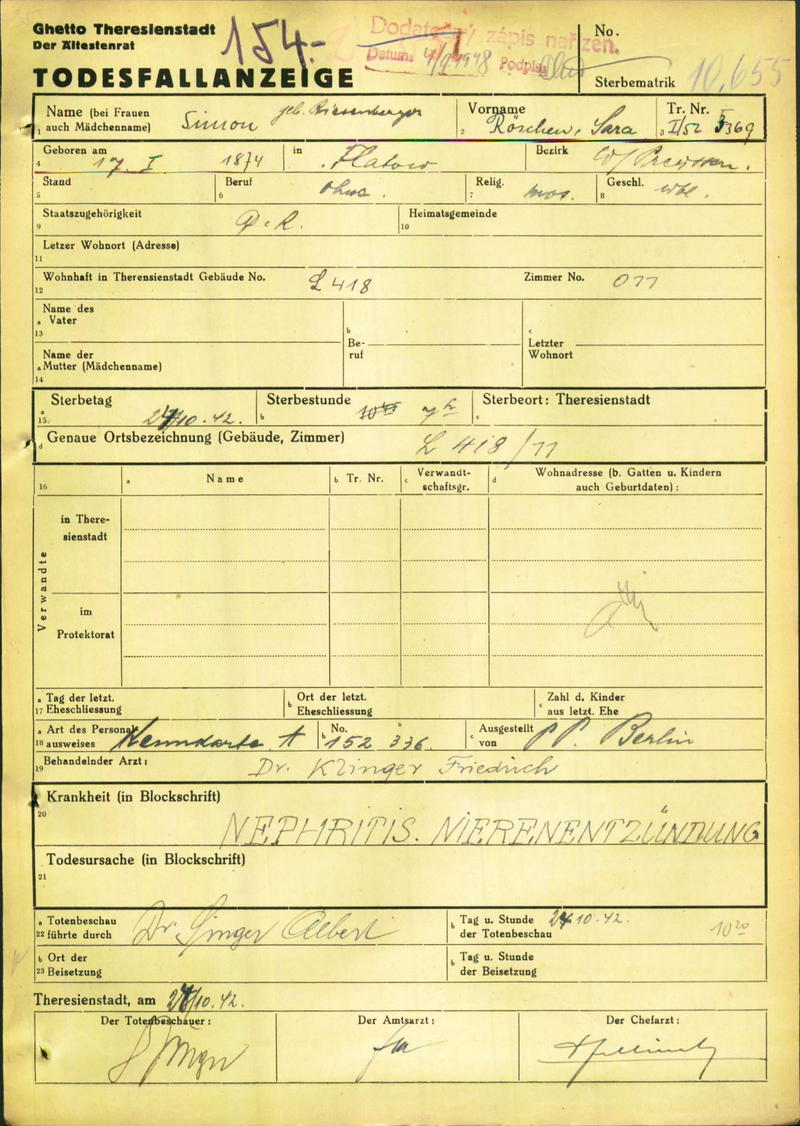 Ghetto Theresienstadt
Der Ältestenrat
154.-
Dodatečný zápis nařízen.
Datum: Podpis
TODESFALLANZEIGE
No.
Sterbematrik 10,655
Name (bei Frauen auch Mädchenname) Simon geb. Riesenburger
1
Vorname Röschen, Sara
2
Tr. Nr. I/52 3369
3
Geboren am 17. I. 1874 in Flatow Bezirk W/Preussen.
4
Stand
5
Beruf ohne.
6
Relig. mos.
7
Geschl. wbl.
8
Staatszugehörigkeit D.R.
9
Heimatsgemeinde
10
Letzer Wohnort (Adresse)
11
Wohnhaft in Theresienstadt Gebäude No. L 418 Zimmer No. 011
12
Name des
a Vater
13
b
Be-
ruf
c
Letzter
Wohnort
Name der
a Mutter (Mädchenname)
14
Sterbetag 10.42.
a
15
Sterbestunde 7h
b
Sterbeort: Theresienstadt
c
d Genaue Ortsbezeichnung (Gebäude, Zimmer) L 418/11
16
a Name
b Tr. Nr.
c Verwandt-
schaftsgr.
d Wohnadresse (b. Gatten u. Kindern
auch Geburtdaten):
Verwandte
in There-
sienstadt
im
Protektorat
a Tag der letzt.
17 Eheschliessung
b Ort der letzt.
Eheschliessung
c Zahl d. Kinder
aus letzt. Ehe
a Art des Personal-
18 ausweises Kennkarte A
b No. 152 336.
c Ausgestellt
von PP. Berlin
Behandelnder Arzt: Dr. Klinger Friedrich
19
Krankheit (in Blockschrift)
20
NEPHRITIS. NIERENENTZÜNDUNG
Todesursache (in Blockschrift)
21
a Totenbeschau
22 führte durch Dr. Singer Albert
b Tag u. Stunde 10.42.
der Totenbeschau 10 20
b Ort der
23 Beisetzung
b Tag u. Stunde
der Beisetzung
Theresienstadt, am 10.42.
Der Totenbeschauer:
Der Amtsarzt:
Der Chefarzt: